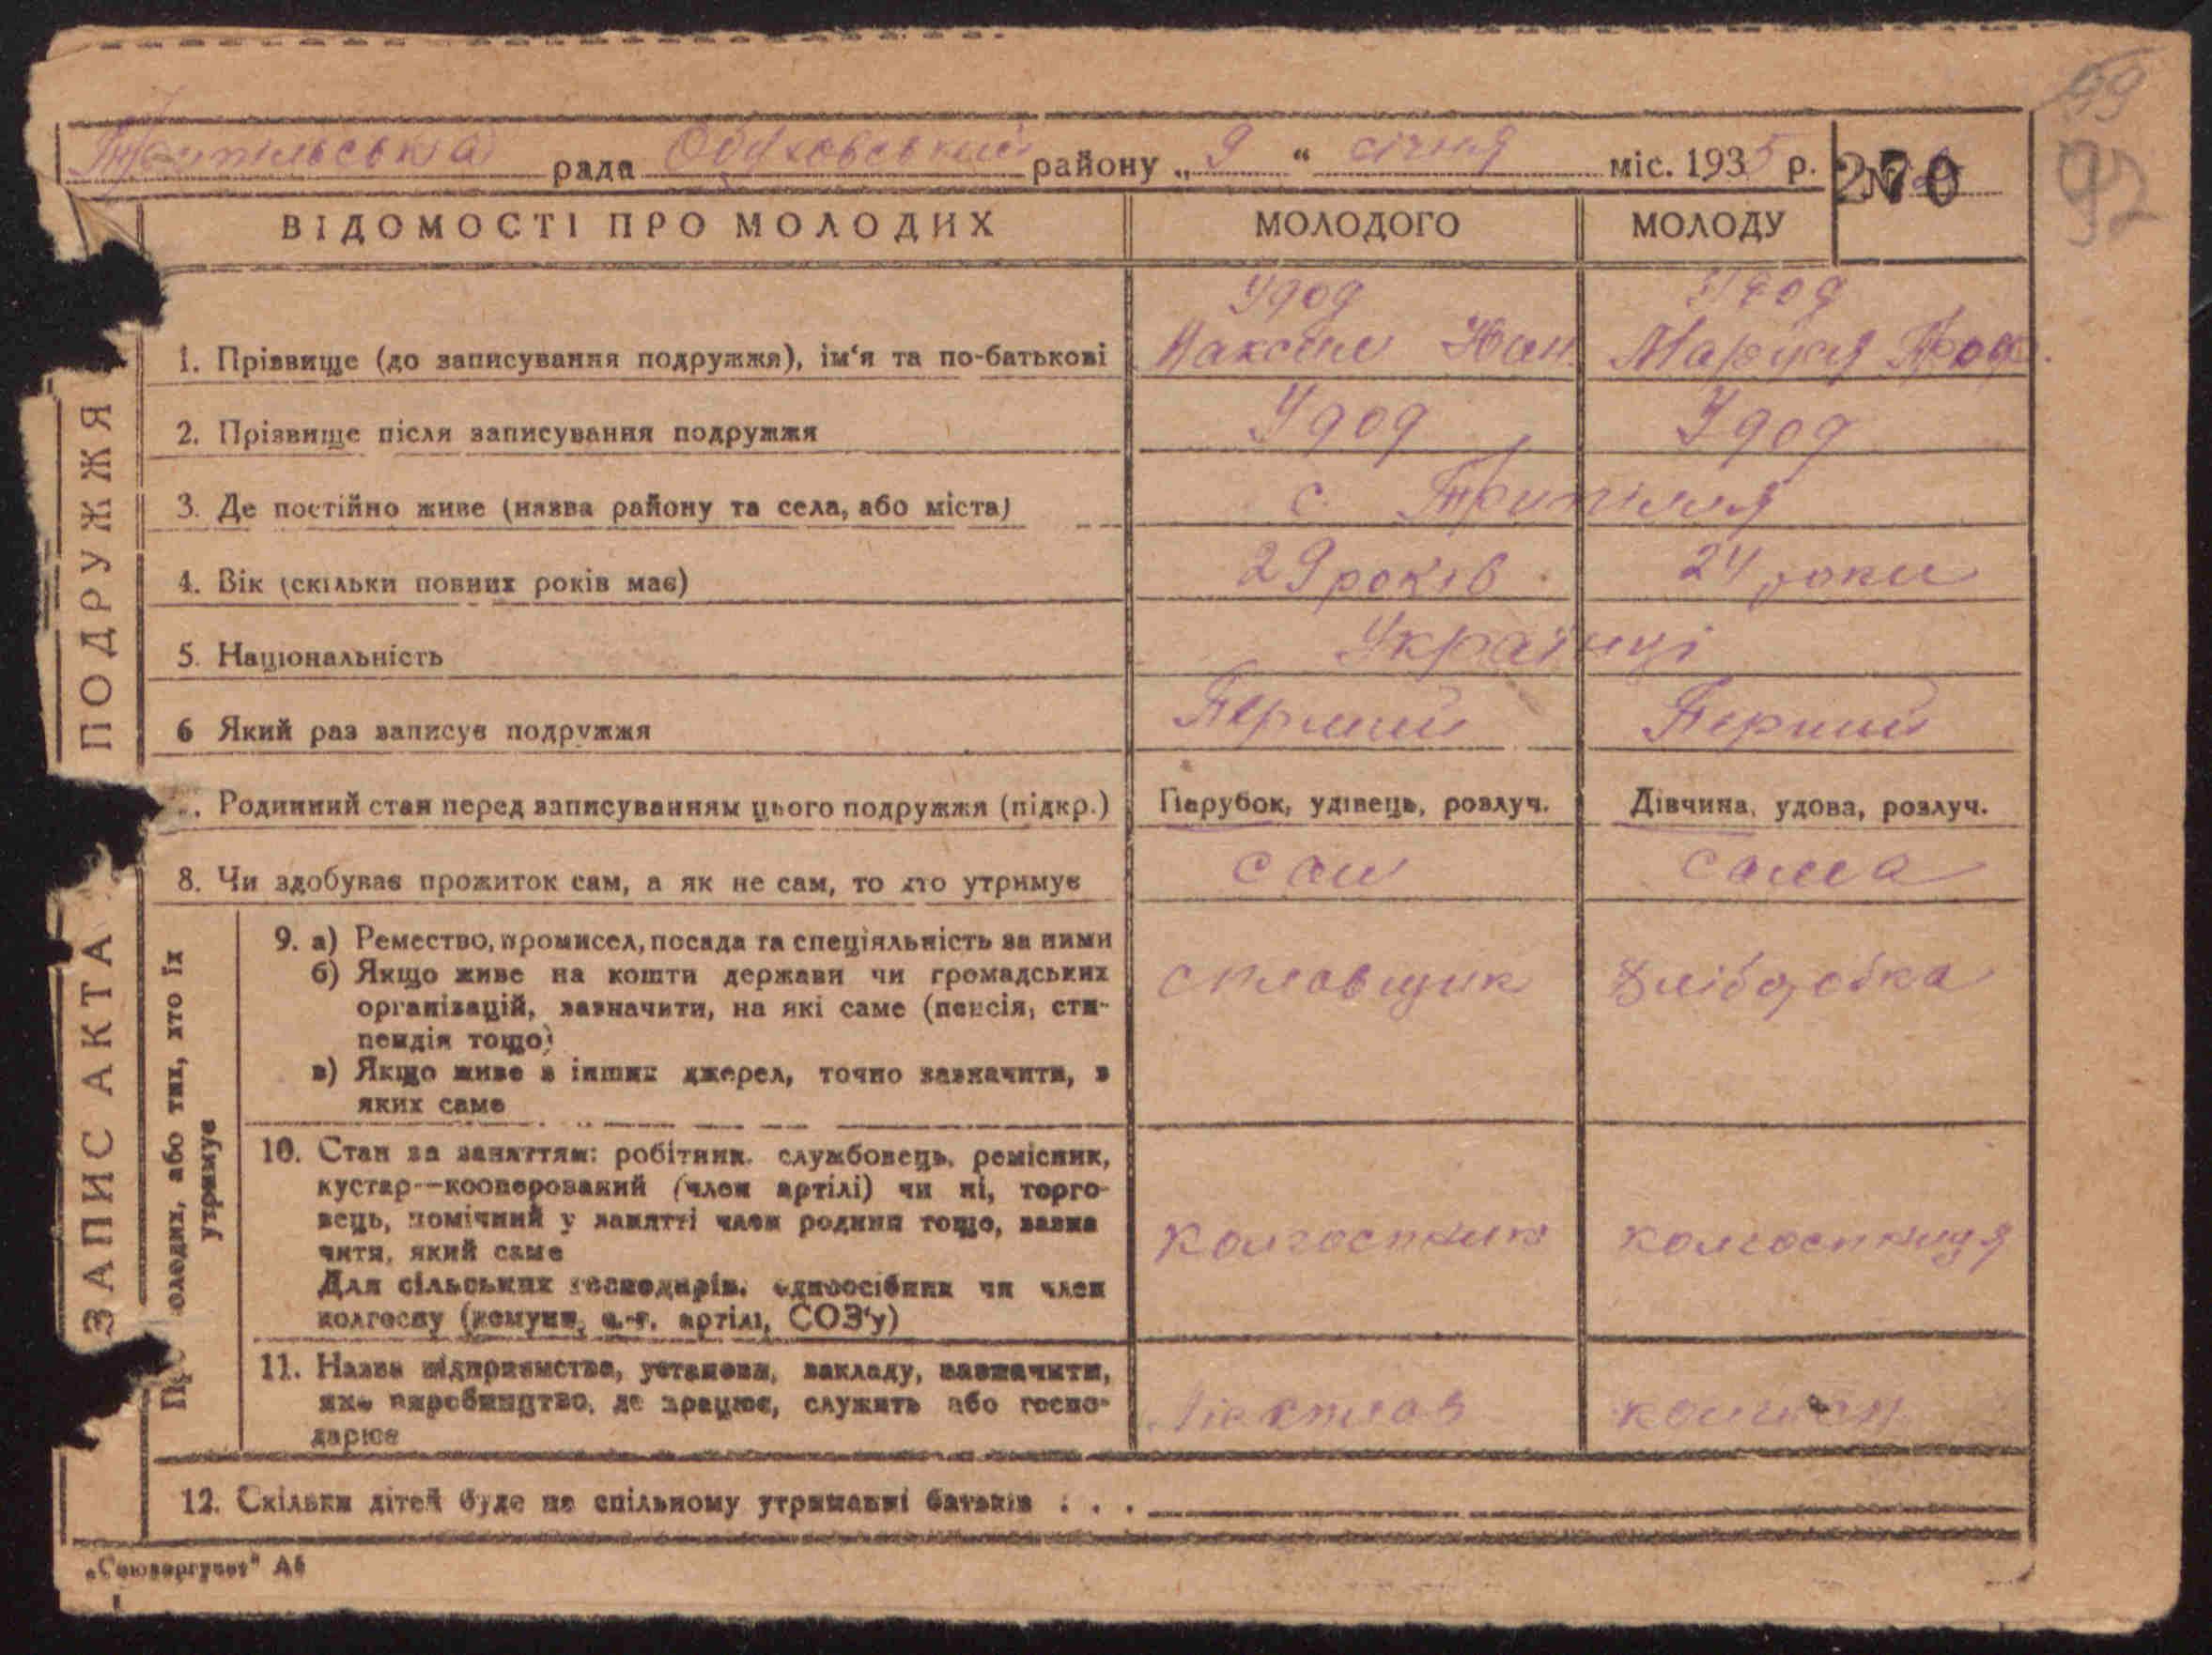 99
92
Трипільська рада Обуховський району „ 9 “ січня міс. 1935 р.
270
ВІДОМОСТІ ПРО МОЛОДИХ МОЛОДОГО МОЛОДУ
Удод Удод
1. Прізвище (до записування подружжя), ім‘я та по-батькові Максим Юхим Маруся Троф.
2. Прізвище після записування подружжя Удод Удод
3. Де постійно живе (назва району та села, або міста) с. Трипілля
4. Вік (скільки повних років має) 29 років 24 роки
5. Національність Українці
6 Який раз записує подружжя Перший Перший
. Родинний стан перед записуванням цього подружжя (підкр.) Парубок, удівець, розлуч. Дівчина, удова, розлуч.
8. Чи здобуває прожиток сам, а як не сам, то хто утримує сам сама
9. а) Ремество, промисел, посада та спеціяльність за ними
б) Якщо живе на кошти держави чи громадських сплавщик Хліборобка
організацій, зазначити, на які саме (пенсія, сти-
пендія тощо)
в) Якщо живе з інших джерел, точно зазначити, з
яких саме
10. Стан за заняттям: робітник, службовець, ремісник,
кустар--кооперований (член артілі) чи ні, торго-
вець, помічний у занятті член родини тощо, зазна
чити, який саме колгоспник колгоспниця
Для сільських господарів: одноосібник чи член
колгоспу (комуни, с.-г. артілі, СОЗ‘у)
11. Назва підприємства, установи, закладу, зазначити,
яке виробництво, де працює, служить або госпо-
дарює колгосп
12. Скільки дітей буде на спільному утриманні батьків . . .
ЗАПИС АКТА ПОДРУЖЖЯ
олодих, або тих, хто їх
утримує